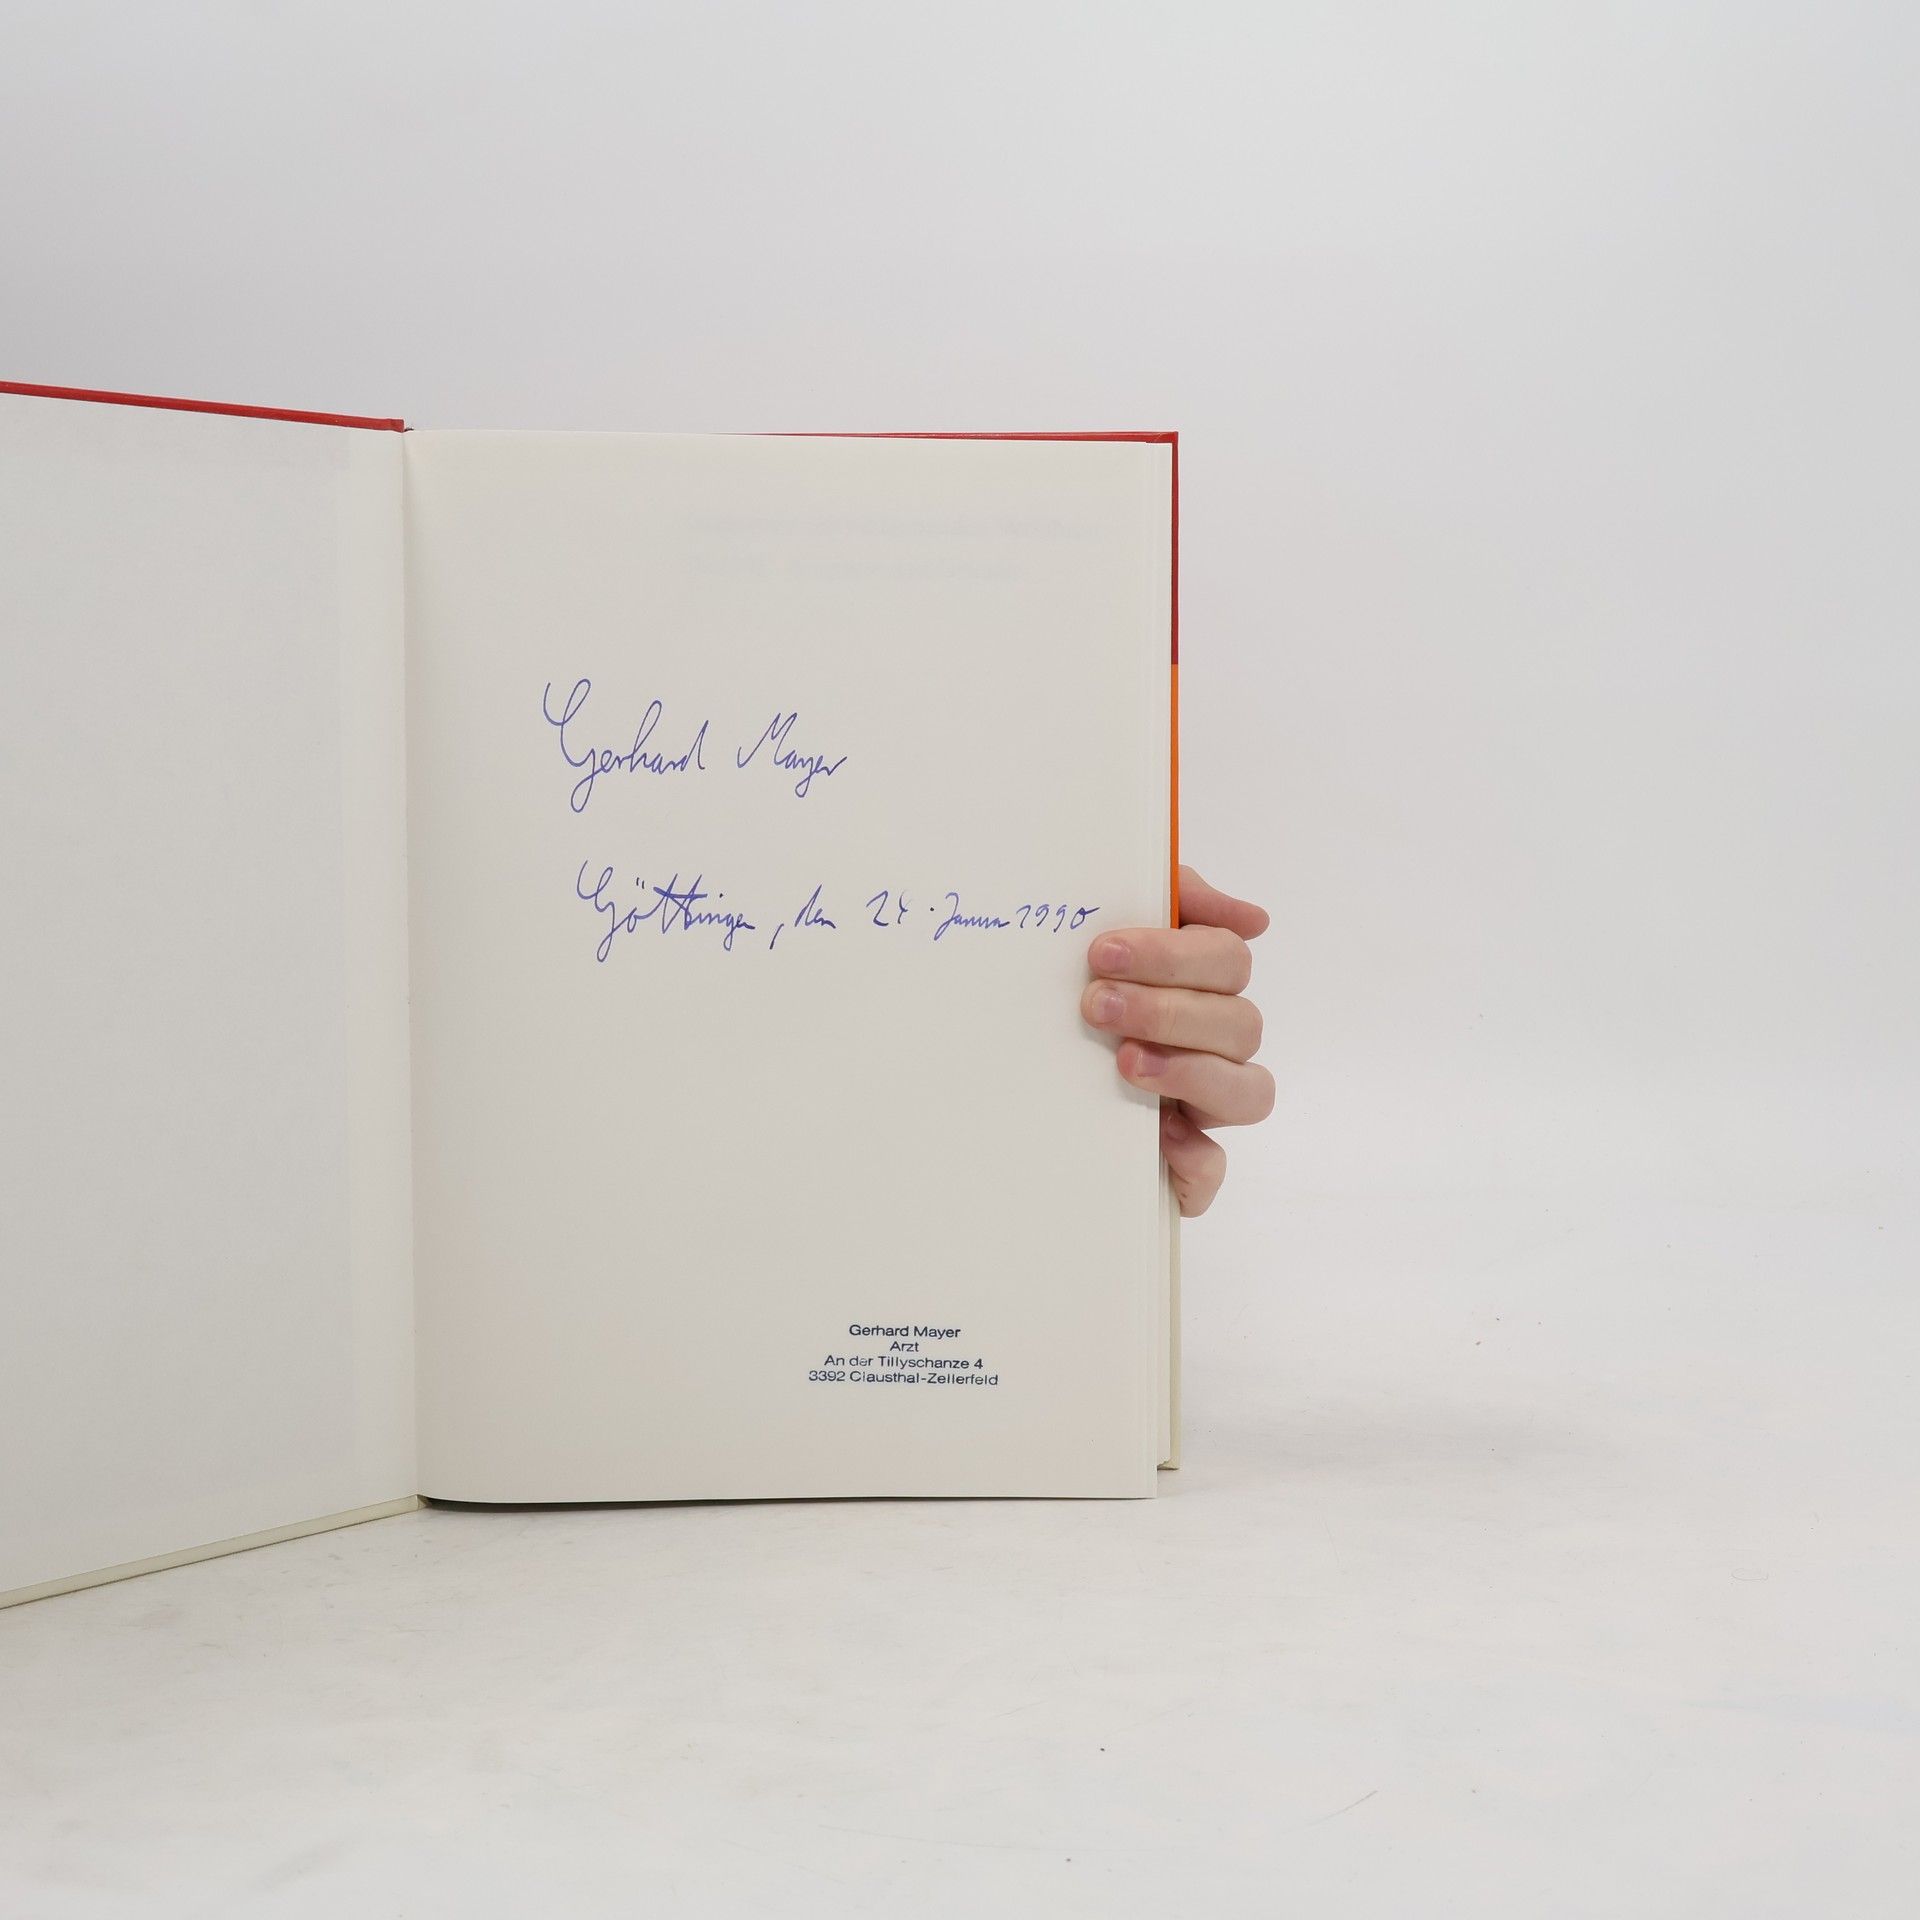 Gerhard Mayer
Göttingen, den 24. Januar 1990
Gerhard Mayer
Arzt
An der Tillyschanze 4
3392 Clausthal-Zellerfeld